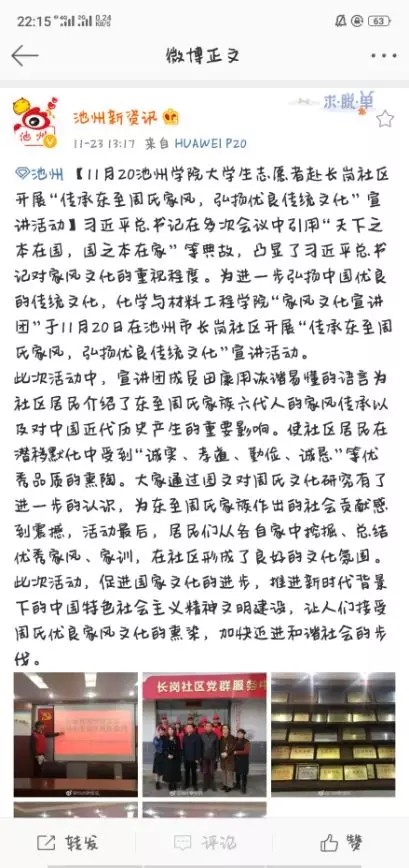 22:15 4G 2G 0.24 KB/S 63
微博正文
池州新资讯
求·脱·单
池州
11-23 13:17 来自 HUAWEI P20
池州 【11月20池州学院大学生志愿者赴长岗社区
开展“传承东至周氏家风，弘扬优良传统文化”宣
讲活动】习近平总书记在多次会议中引用“天下之
本在国，国之本在家”等典故，凸显了习近平总书
记对家风文化的重视程度。为进一步弘扬中国优良
的传统文化，化学与材料工程学院“家风文化宣讲
团”于11月20日在池州市长岗社区开展“传承东至周
氏家风，弘扬优良传统文化”宣讲活动。
此次活动中，宣讲团成员田康用诙谐易懂的语言为
社区居民介绍了东至周氏家族六代人的家风传承以
及对中国近代历史产生的重要影响。使社区居民在
潜移默化中受到“诚实、孝道、勤俭、诚恳”等优
秀品质的熏陶。大家通过图文对周氏文化研究有了
进一步的认识，为东至周氏家族作出的社会贡献感
到震撼，活动最后，居民们从各自家中挖掘、总结
优秀家风、家训，在社区形成了良好的文化氛围。
此次活动，促进国家文化的进步，推进新时代背景
下的中国特色社会主义精神文明建设，让人们接受
周氏优良家风文化的熏染，加快迈进和谐社会的步
伐。
长岗社区党群服务中
转发 评论 赞